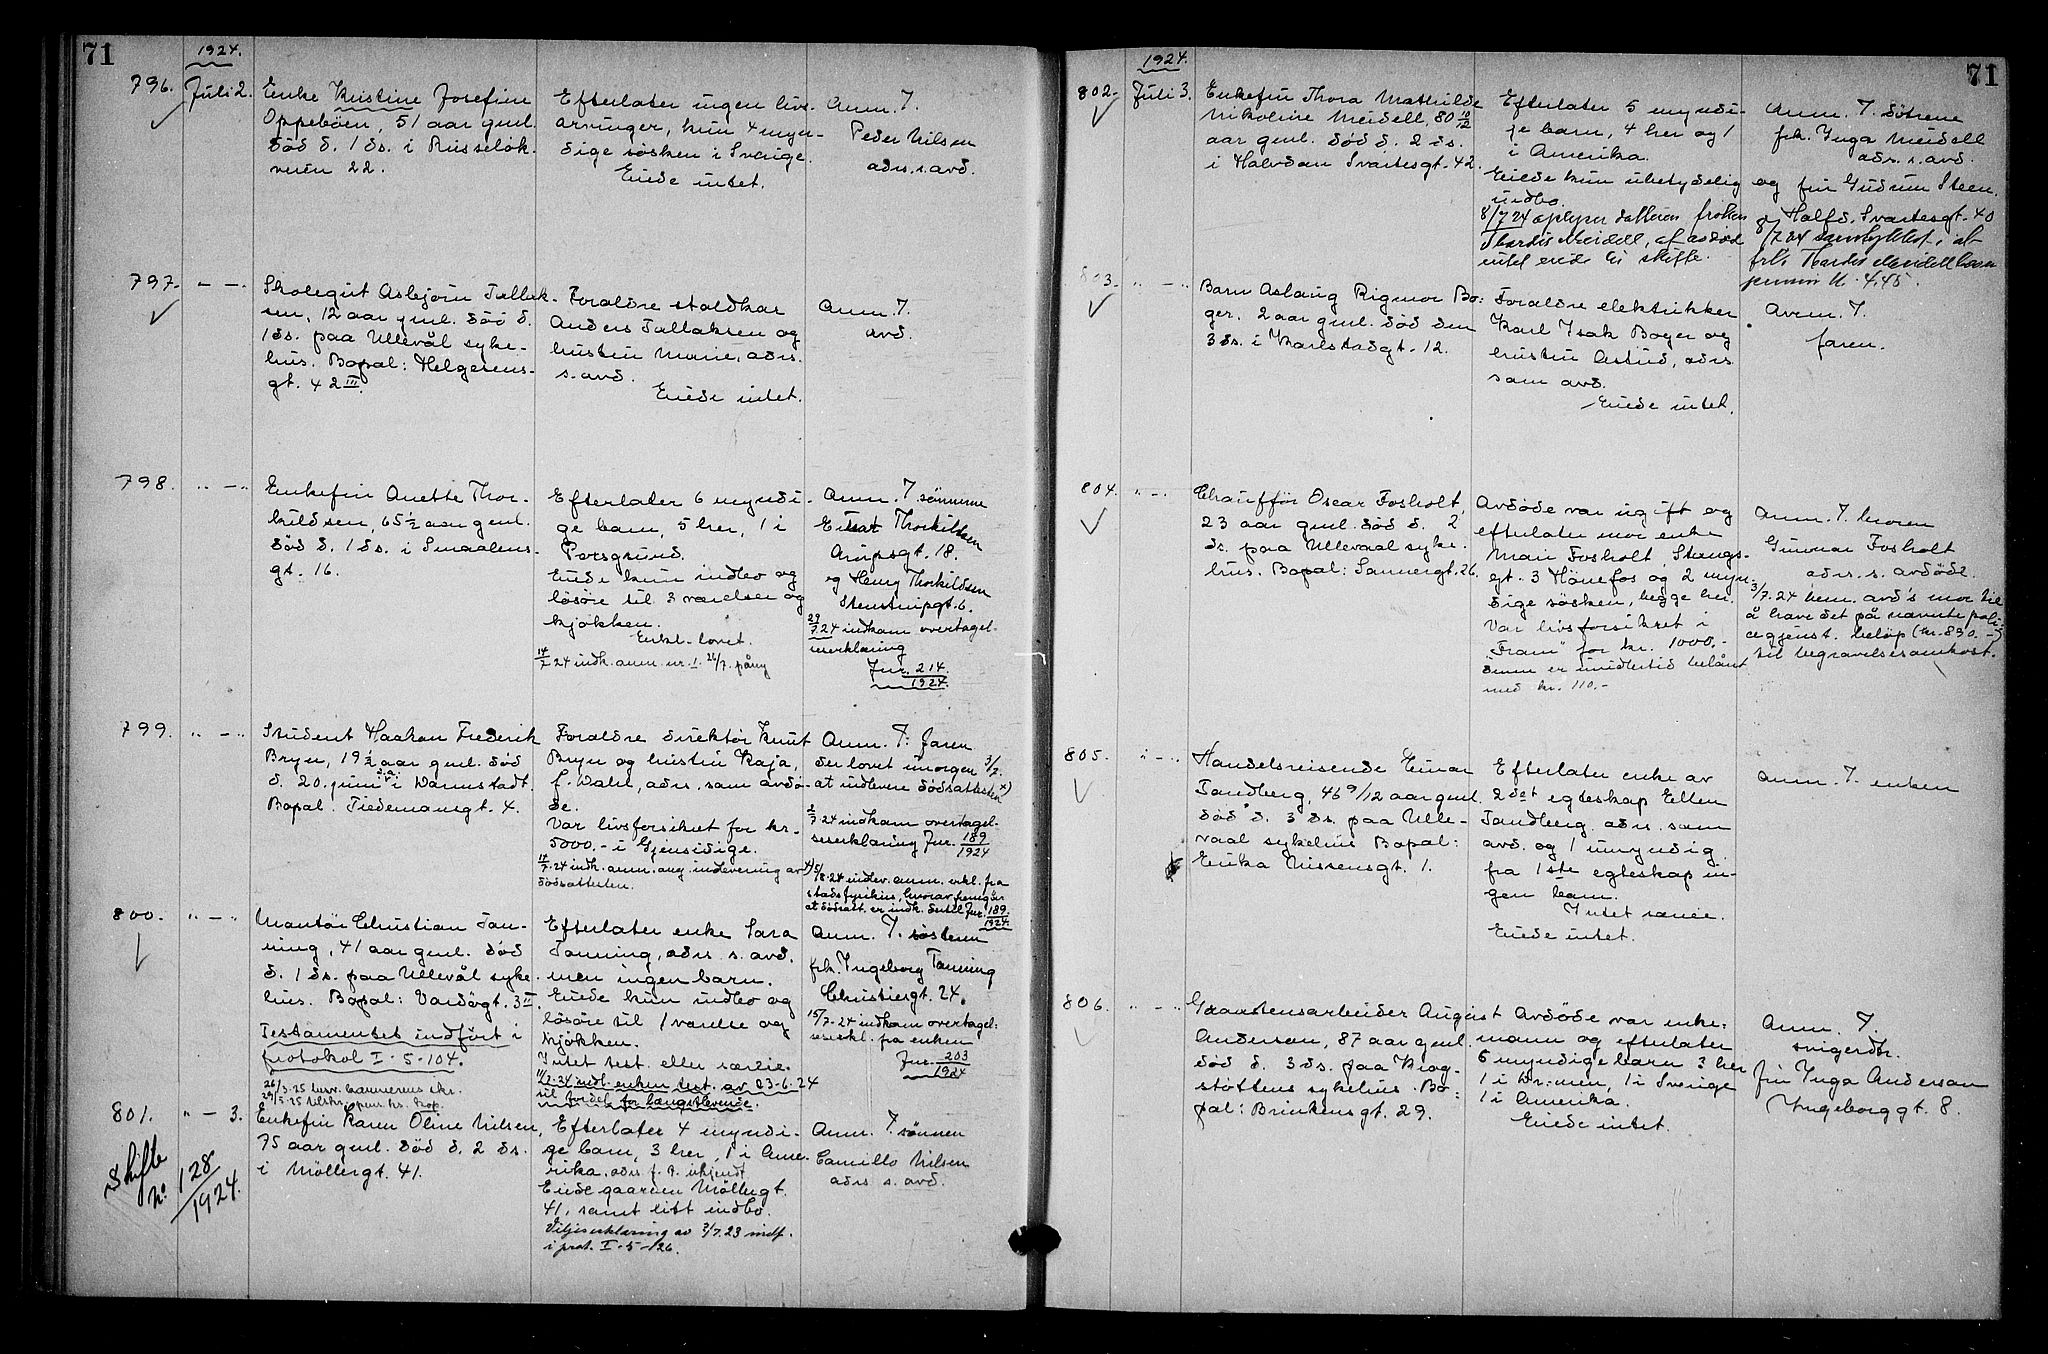 71
1924.
796. Juli 2.
Enke Kristine Josefine
Oppeböen, 51 aar gml.
död d. 1 ds. i Ruselök-
veien 22.
Efterlater ingen livs-
arvinger, kun 4 myn-
dige søsken i Sverige.
Eiede intet.
Anm. 7.
Peder Nilsen
adrs. s. avd.
797. — —
Skolegut Asbjørn Tallak-
sen, 12 aar gml. död d.
1 ds. paa Ullevål syke-
hus. Bopal: Helgesens-
gt. 42 III.
Foraldre staldkar
Anders Tallaksen og
hustru Marie, adrs.
s. avd.
Eiede intet.
Anm. 7.
avd.
798. " — "
Enkefru Anette Thor-
kildsen, 65 1/2 aar gml.
död d. 1 ds. i Smaalens-
gt. 16.
Efterlater 6 myndi-
ge barn, 5 her, 1 i
Porsgrund.
Eiede kun indbo og
lösöre til 3 værelser og
kjøkken.
Erkl. lovet.
14/7 24 indk. anm. nr. 1. 26/7. påny
Anm. 7. sönnene
Einar Thorkildsen
Arupsgt. 18.
og Henry Thorkildsen
Stenstrupgt. 6.
29/7.24 indkom overtagel-
seserklæring
Jnr. 214
1924.
799. " — "
Student Haakon Frederik
Bryn, 19 1/2 aar gml. død
d. 20. juni d.a. i Darmstadt.
Bopal: Tiedemansgt. 4.
Foraldre direktør Knut
Bryn og hustru Kaja,
f. Wahl, adrs. som avdö-
de.
Var livsforsikret for kr.
5000.- i Gjensidige.
14/7.24 indk. anm. ang. indlevering av
dödsattesten.
Anm. 7: faren
der lovet imorgen 3/7.
at indlevere dödsattesten x)
2/7.24 indkom overtagel-
seserklæring Jnr. 189
1924
x) 5/8.24 indlev. anm. erkl. fra
stadsfysikus, hvorav fremgår
at dödsatt. er indk. dertil Jnr. 189.
1924.
800. " — "
Montör Christian Tan-
ning, 41 aar gml. död
d. 1 ds. paa Ullevål syke-
hus. Bopal: Vardøgt. 3 II.
Testamentet indført i
protokol I-5-104.
Efterlater enke Sara
Tanning, adrs. s. avd.
men ingen barn.
Eiede kun indbo og
lösöre til 1 værelse og
kjøkken.
Intet test. eller særeie.
11/7.24 indl. enken test. av 23-6-24
til fordel for længstlevende.
Anm. 7. søsteren
frk. Ingeborg Tanning
Christiesgt. 24.
15/7.24 indkom overtagel-
seserkl. fra enken
Jnr. 203
1924
801. " — 3.
Skifte
No 128/1924.
Enkefru Karen Oline Nilsen,
75 aar gml. död d. 2 ds.
i Möllergt. 41.
Efterlater 4 myndi-
ge barn, 3 her, 1 i Ame-
rika, adrs. f. t. ukjendt
Eiede gaarden Möllergt.
41, samt litt indbo.
Viljeserklæring av 2/7.23 indf.
i prot. I-5-126.
Anm. 7. sönnen
Camillo Nilsen
adrs s. avd.
71
1924.
802. Juli 3.
Enkefru Thora Mathilde
Nikoline Meidell, 80 10/12
aar gml. död d. 2 ds.
i Halvdan Svartesgt. 42.
Efterlater 5 myndi-
ge barn, 4 her og 1
i Amerika.
Eiede kun ubetydelig
indbo.
8/7 24 oplyser datteren frøken
Thordis Meidell, at avdøde
intet eiede til skifte.
Anm. 7. døtrene
frk. Inga Meidell
adrs. s. avd.
og fru Gudrun Steen.
Halfd. Svartesgt. 40
8/7 24 samtykket i at
frk. Thordis Meidell
803. " — "
Barn Aslaug Rigmor Bo-
ger, 2 aar gml. död den
3 ds. i Karlstadgt. 12.
Foraldre elektrikker
Karl Isak Boger og
hustru Astrid, adrs.
som avd.
Eiede intet.
Anm. 7.
faren.
804. " — "
Chauffør Oscar Fosholt,
23 aar gml. död d. 2
ds. paa Ullevaal syke-
hus. Bopal: Sannergt. 26.
Avdøde var ugift og
efterlater mor enke
Mari Fosholt, Stangs-
gt. 3 Hönefos og 2 myn-
dige søsken, begge her.
Var livsforsikret i
"Fram" for kr. 1000.-
denne er imidlertid belånt
med kr. 110.-
Anm. 7. broren
Gunnar Fosholt
adrs. s. avdöde.
3/7.24 bem. avd's mor til
å have det på nævnte poli-
cegjenst. beløp (kr. 830.-)
til begravelsesomkost.
805. " — "
Handelsreisende Einar
Tandberg, 46 9/12 aar gml.
død d. 3 ds. paa Ulle-
vaal sykehus Bopal:
Erika Nissensgt. 1.
Efterlater enke av
2det egteskap Ellen
Tandberg adrs. som
avd. og 1 umyndig
fra 1ste egteskap in-
gen barn.
Intet særeie.
Eiede intet.
Anm. 7. enken
806. " — "
Graastensarbeider August
Anderson, 87 aar gml.
död d. 3 ds. paa Krog-
støttens sykehus. Bo-
pal: Brinkensgt. 29.
Avdøde var enke-
mann og efterlater
6 myndige barn 3 her
1 i Dr:men, 1 i Sverige
1 i Amerika.
Eiede intet.
Anm. 7.
svigerdtr.
fru Inga Anderson
Ingeborggt. 8.